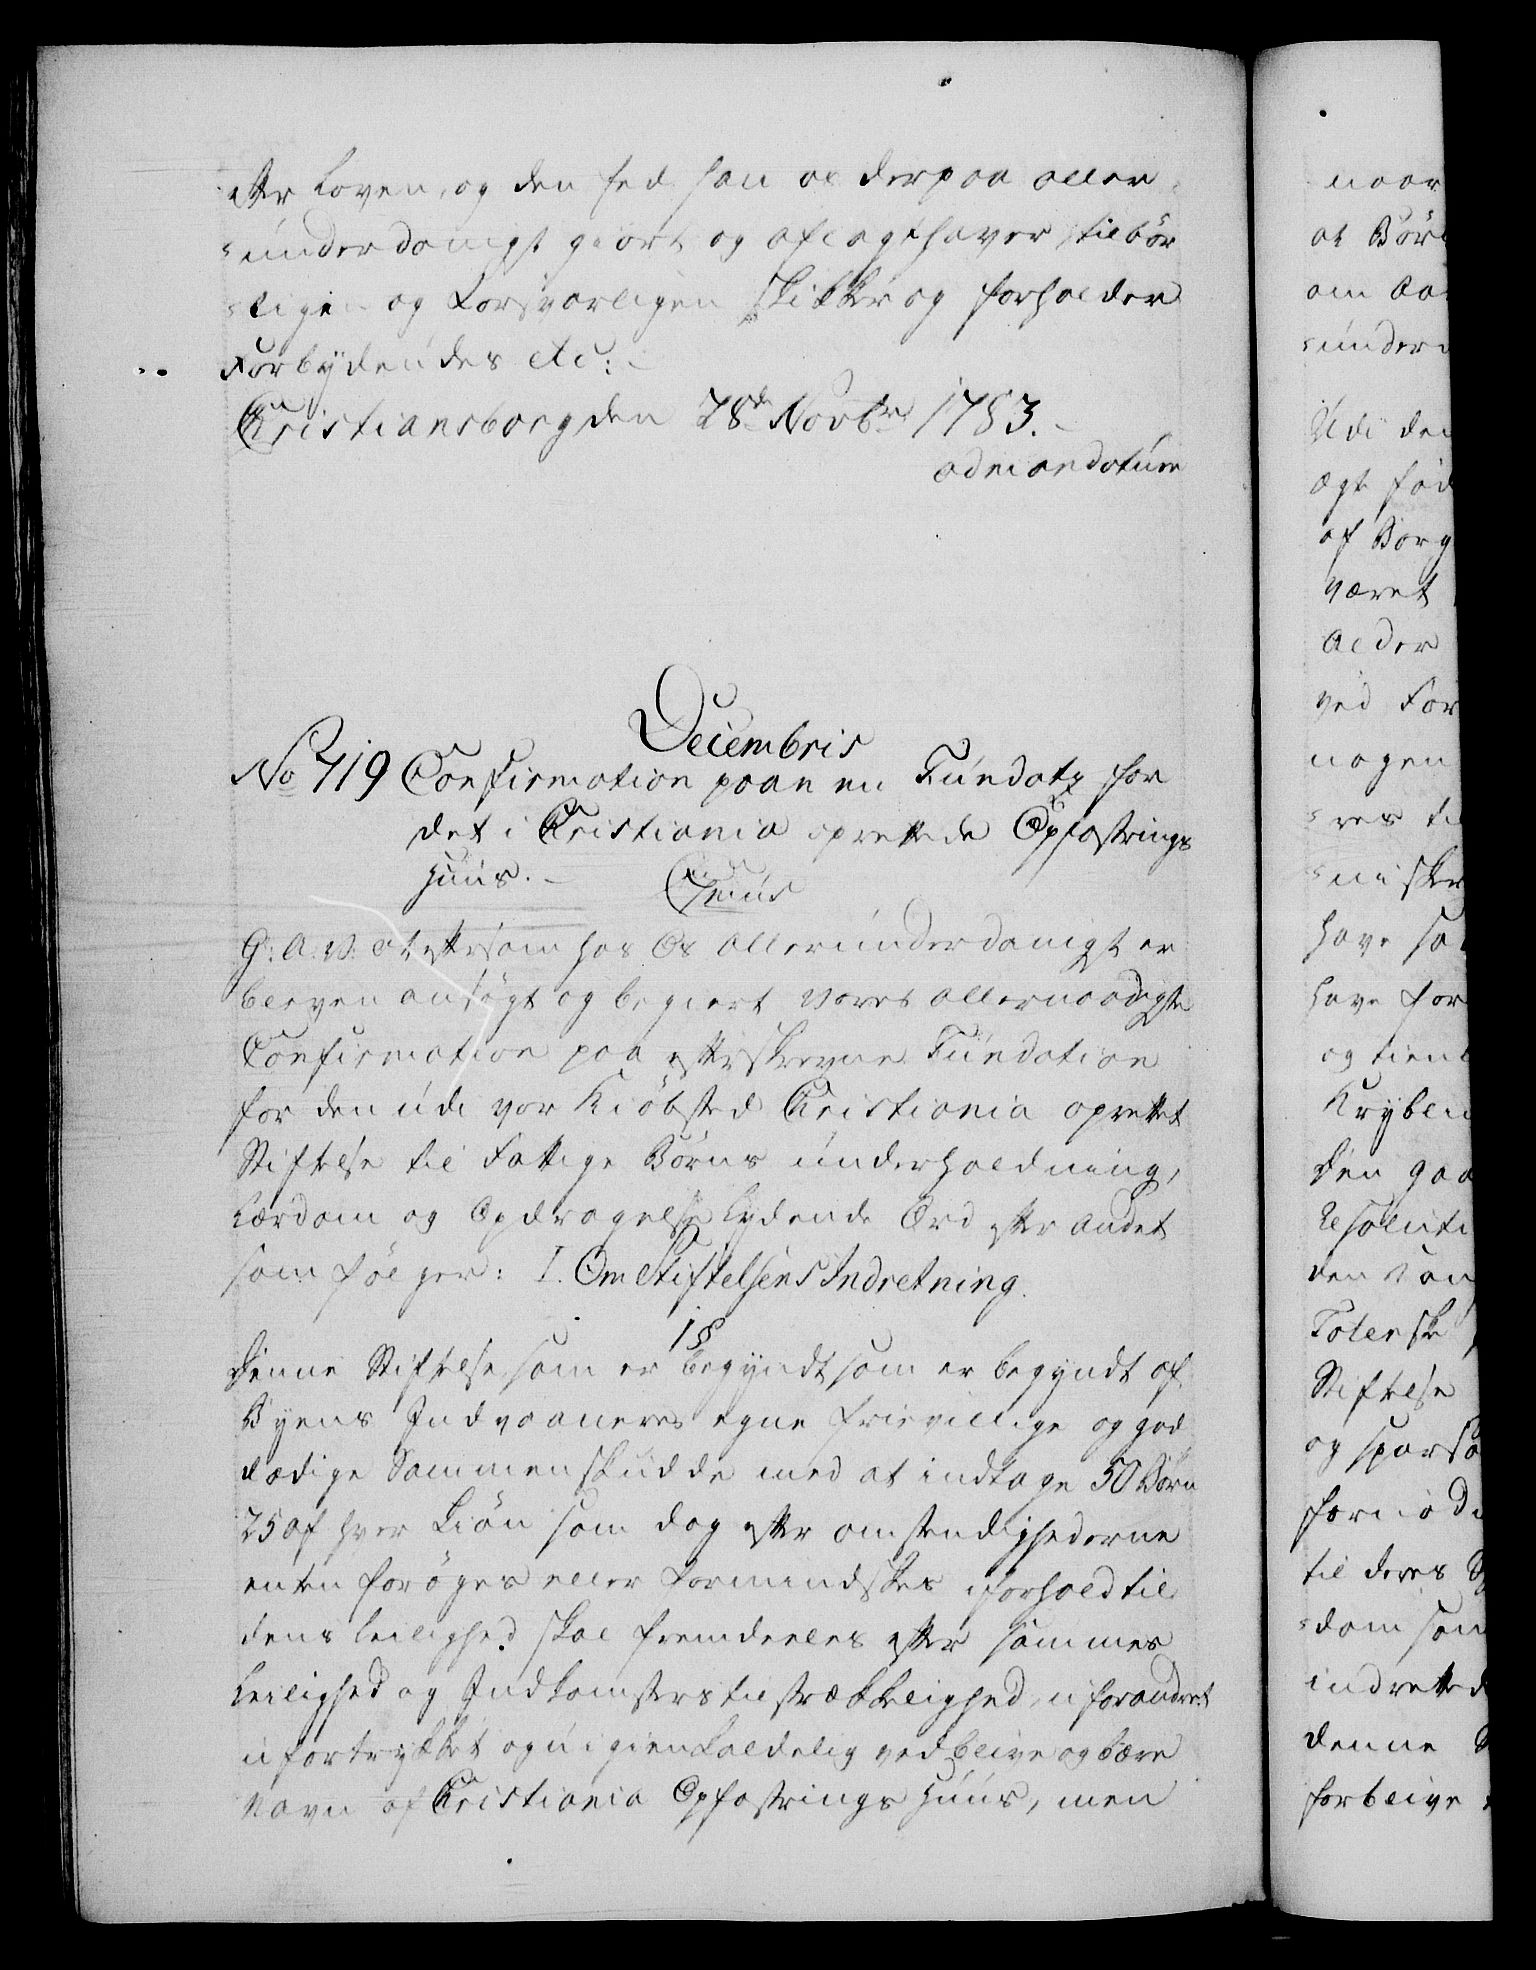 efter Loven, og den Eed han os derpaa aller-
-underdanigst giort og aflagt haver, tilbør
-ligen og forsvarligen skikker og forholder
Forbydendes etc:
Christiansborg den 28de Novbr 1783.
ad mandatum
Decembris
No 719 Confirmation paa en Fundatz for
det i Christiania oprettede Opfostrings
Huus.
G: A: V: at eftersom hos Os allerunderdanigst er
bleven ansøgt og begiert Vores allernaadigste
Confirmation paa efterskrevne Fundation
for den udi vor Kiøbsted Christiania oprettet
Stiftelse til Fattige Børns underholdning,
Lærdom og Opdragelse lydende Ord efter andet
som følger: I. Om Stiftelsens Indretning.
1 §
Denne Stiftelse som er begyndt som er begyndt af
Byens Indvaaneres egne frievillige og god
dædige Sammenskudde med at indtage 50 Børn
25 af hver Kiøn som dog efter omstendighederne
enten forøges eller formindskes i forhold til
dens leilighed skal fremdeeles efter sammes
Leilighed og Indkomsters tilstrækkelighed, uforandret
ufortrykket og uigienkaldelig vedblive og bære
Navn af Christiania Opfostrings Huus, men
naar
at Børn
om Aa
-under
Udi den
ægte fød
af Borg
været
Alder
ved For
nogen
-res ti
-niske
have sa
have for
og tiene
Den gaa
Resoluti
den
Totenske
Stiftelse
og sparso
fornød
til deres
-dom som
indretted
denne
forblive